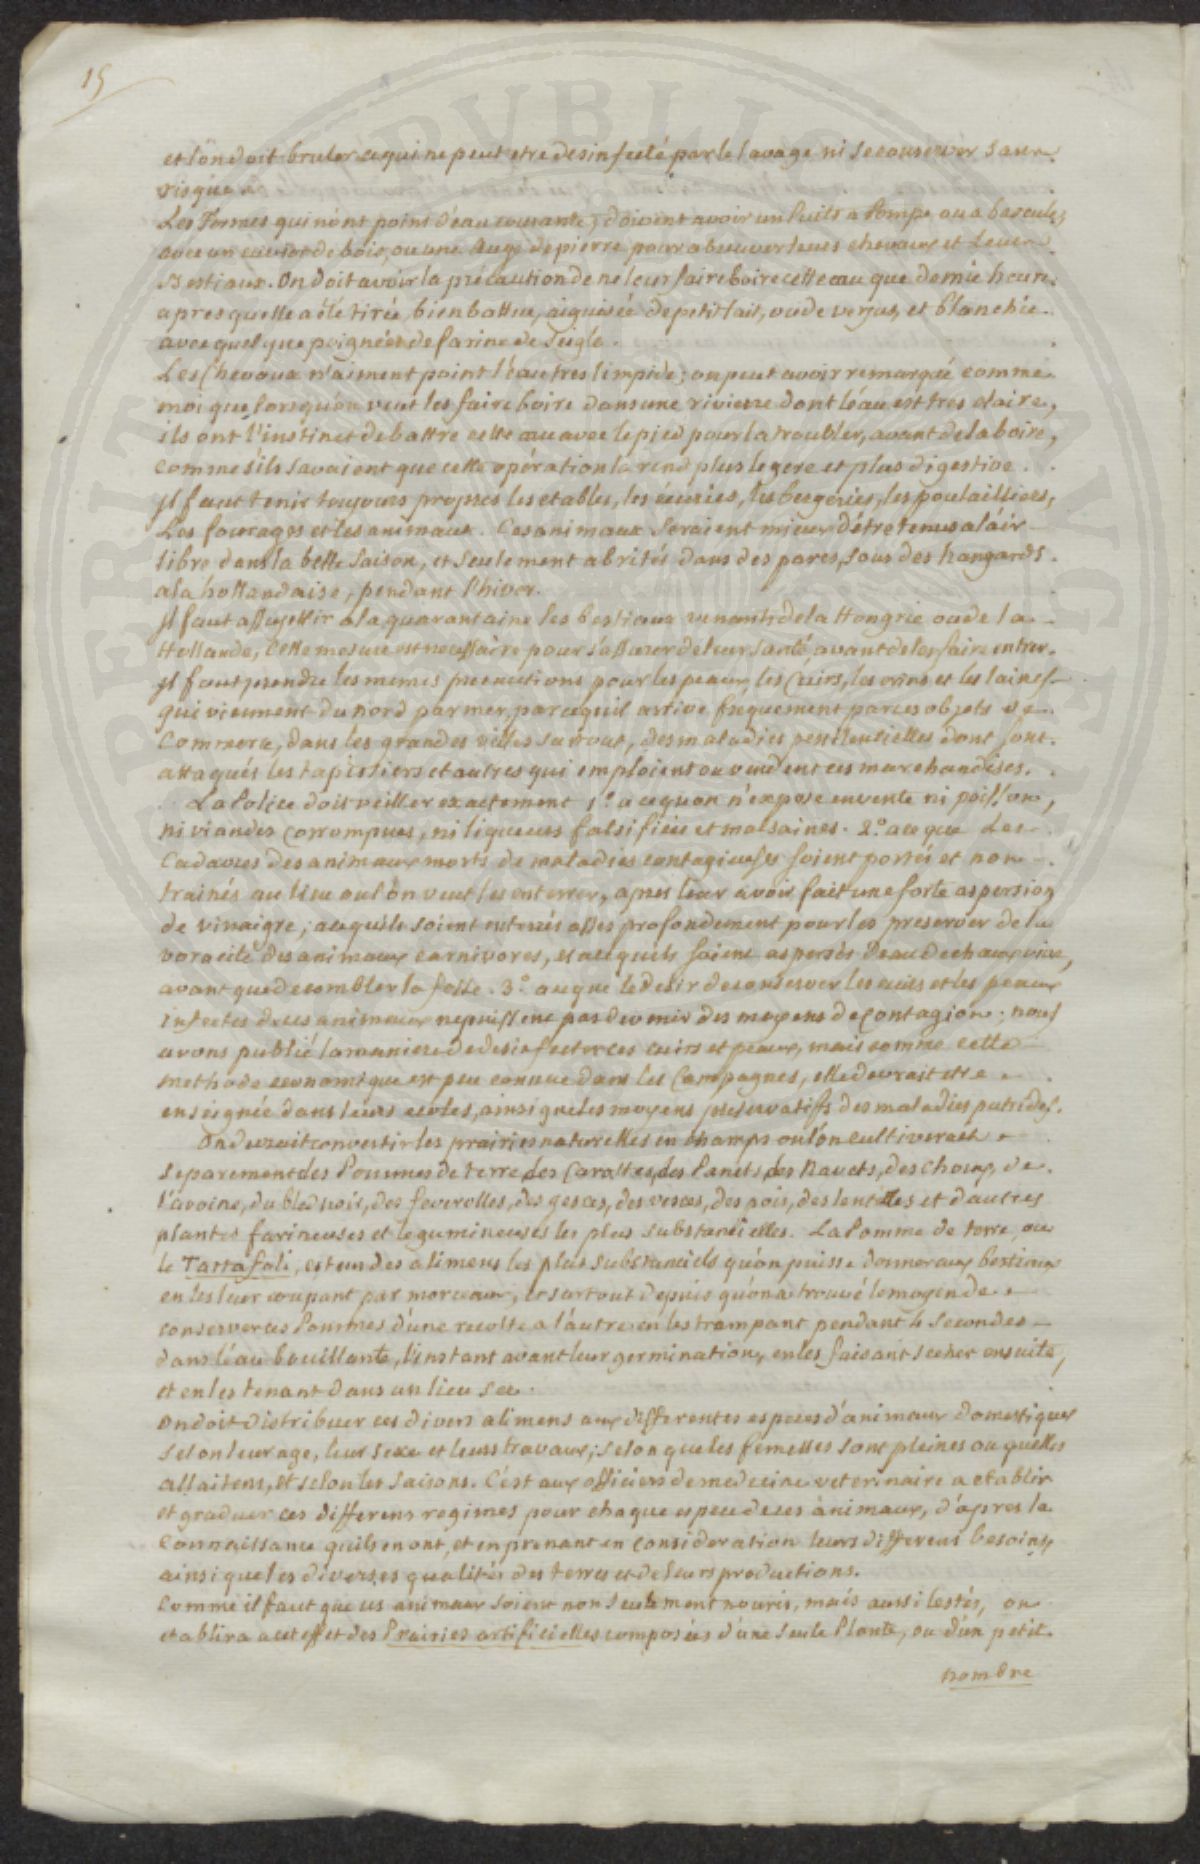 15
et l'on doit bruler ce qui ne peut etre desinfecté par le lavage ni se conserver sans
risque.
Les Fermes qui n'ont point d'eau courante, doivent avoir un Puits a Pompe ou a bascule,
avec un cuvier de bois, ou une Auge de pierre pour abreuver leurs chevaux et Leurs
Bestiaux. On doit avoir la précaution de ne leur faire boire cette eau que demie heure
apres qu'elle a été tirée, bien battue, aiguisée de petit lait, ou de verjus, et blanchie
avec quelque poignées de farine de Seigle.
Les Chevaux n'aiment point l'eau tres limpide; on peut avoir remarqué comme
moi que lorsqu'on veut les faire boire dans une riviere dont l'eau est tres claire,
ils ont l'instinct de battre cette eau avec le pied pour la troubler, avant de la boire,
comme s'ils savaient que cette opération la rend plus legere et plus digestive.
Il faut tenir toujours propres les etables, les écuries, les bergeries, les poulaillers,
Les fourages et les animaux. Ces animaux seraient mieux d'étre tenus a l'air
libre dans la belle saison, et seulement abrités dans des parcs, sous des hangards
a la hollandaise, pendant l'hiver.
Il faut assujettir a la quarantaine les bestiaux venants de la Hongrie ou de la
Hollande, cette mesure est necessaire pour s'assurer de leur santé, avant de les faire entrer.
Il faut prendre les memes precautions pour les peaux, les Cuirs, les crins et les laines
qui viennent du Nord par mer, parcequil arrive frequement par ces objets de
Commerce, dans les grandes villes surtout, des maladies pestilentielles dont sont
attaqués les tapissiers et autres qui emploient ou vendent ces marchandises.
La Police doit veiller exactement 1.º a ce qu'on n'expose en vente ni poisson,
ni viandes corrompues, ni liqueurs falsifiées et malsaines. 2.º a ce que Les
Cadavres des animaux morts de maladies contagieuses soient portés et non
trainés au lieu ou l'on veut les enterrer, apres leur avoir fait une forte aspersion
de vinaigre; a ce quils soient enterrés assés profondement pour les preserver de la
voracité des animaux carnivores, et a ce quils soient aspersés d'eau de chaux vive,
avant que de combler la fosse. 3.º a ce que le desir de conserver les cuirs et les peaux
infectes de ces animaux ne puissent pas devenir des moyens de Contagion; nous
avons publié la maniere de desinfecter ces cuirs et peaux, mais comme cette
methode economique est peu connue dans les Campagnes, elle devrait etre
enseignée dans leurs ecoles, ainsi que les moyens preservatifs des maladies putrides.
On devrait convertir les prairies naturelles en champs ou l'on cultiverait
separement des Pommes de terre, des Carottes, des Panets, des Navets, des Choux, de
l'avoine, du bled noir, des feverolles, des gesces, des vesces, des pois, des lentilles et d'autres
plantes farineuses et legumineuses les plus substancielles. La Pomme de terre, ou
le Tartafoli, est un des alimens les plus substanciels qu'on puisse donner aux bestiaux
en les leur coupant par morceaux, et surtout depuis qu'on a trouvé le moyen de
conserver ces Pommes d'une recolte a l'autre en les trempant pendant 4 Secondes
dans l'eau bouillante, l'instant avant leur germination, en les faisant secher ensuite,
et en les tenant dans un lieu sec.
On doit distribuer ces divers alimens aux differentes especes d'animaux domestiques
selon leur age, leur sexe et leurs travaux; selon que les femelles sont pleines ou qu'elles
allaitent, et selon les saisons. C'est aux officiers de medecine veterinaire a etablir
et graduer ces differens regimes pour chaque espece de ces animaux, d'apres la
Connaissance quils en ont, et en prenant en consideration leurs differens besoins,
ainsi que les diverses qualités des terres et de leurs productions.
Comme il faut que ces animaux soient non seulement nouris, mais aussi lestés, on
etablira a cet effet des Prairies artificielles composées d'une seule Plante, ou d'un petit
nombre